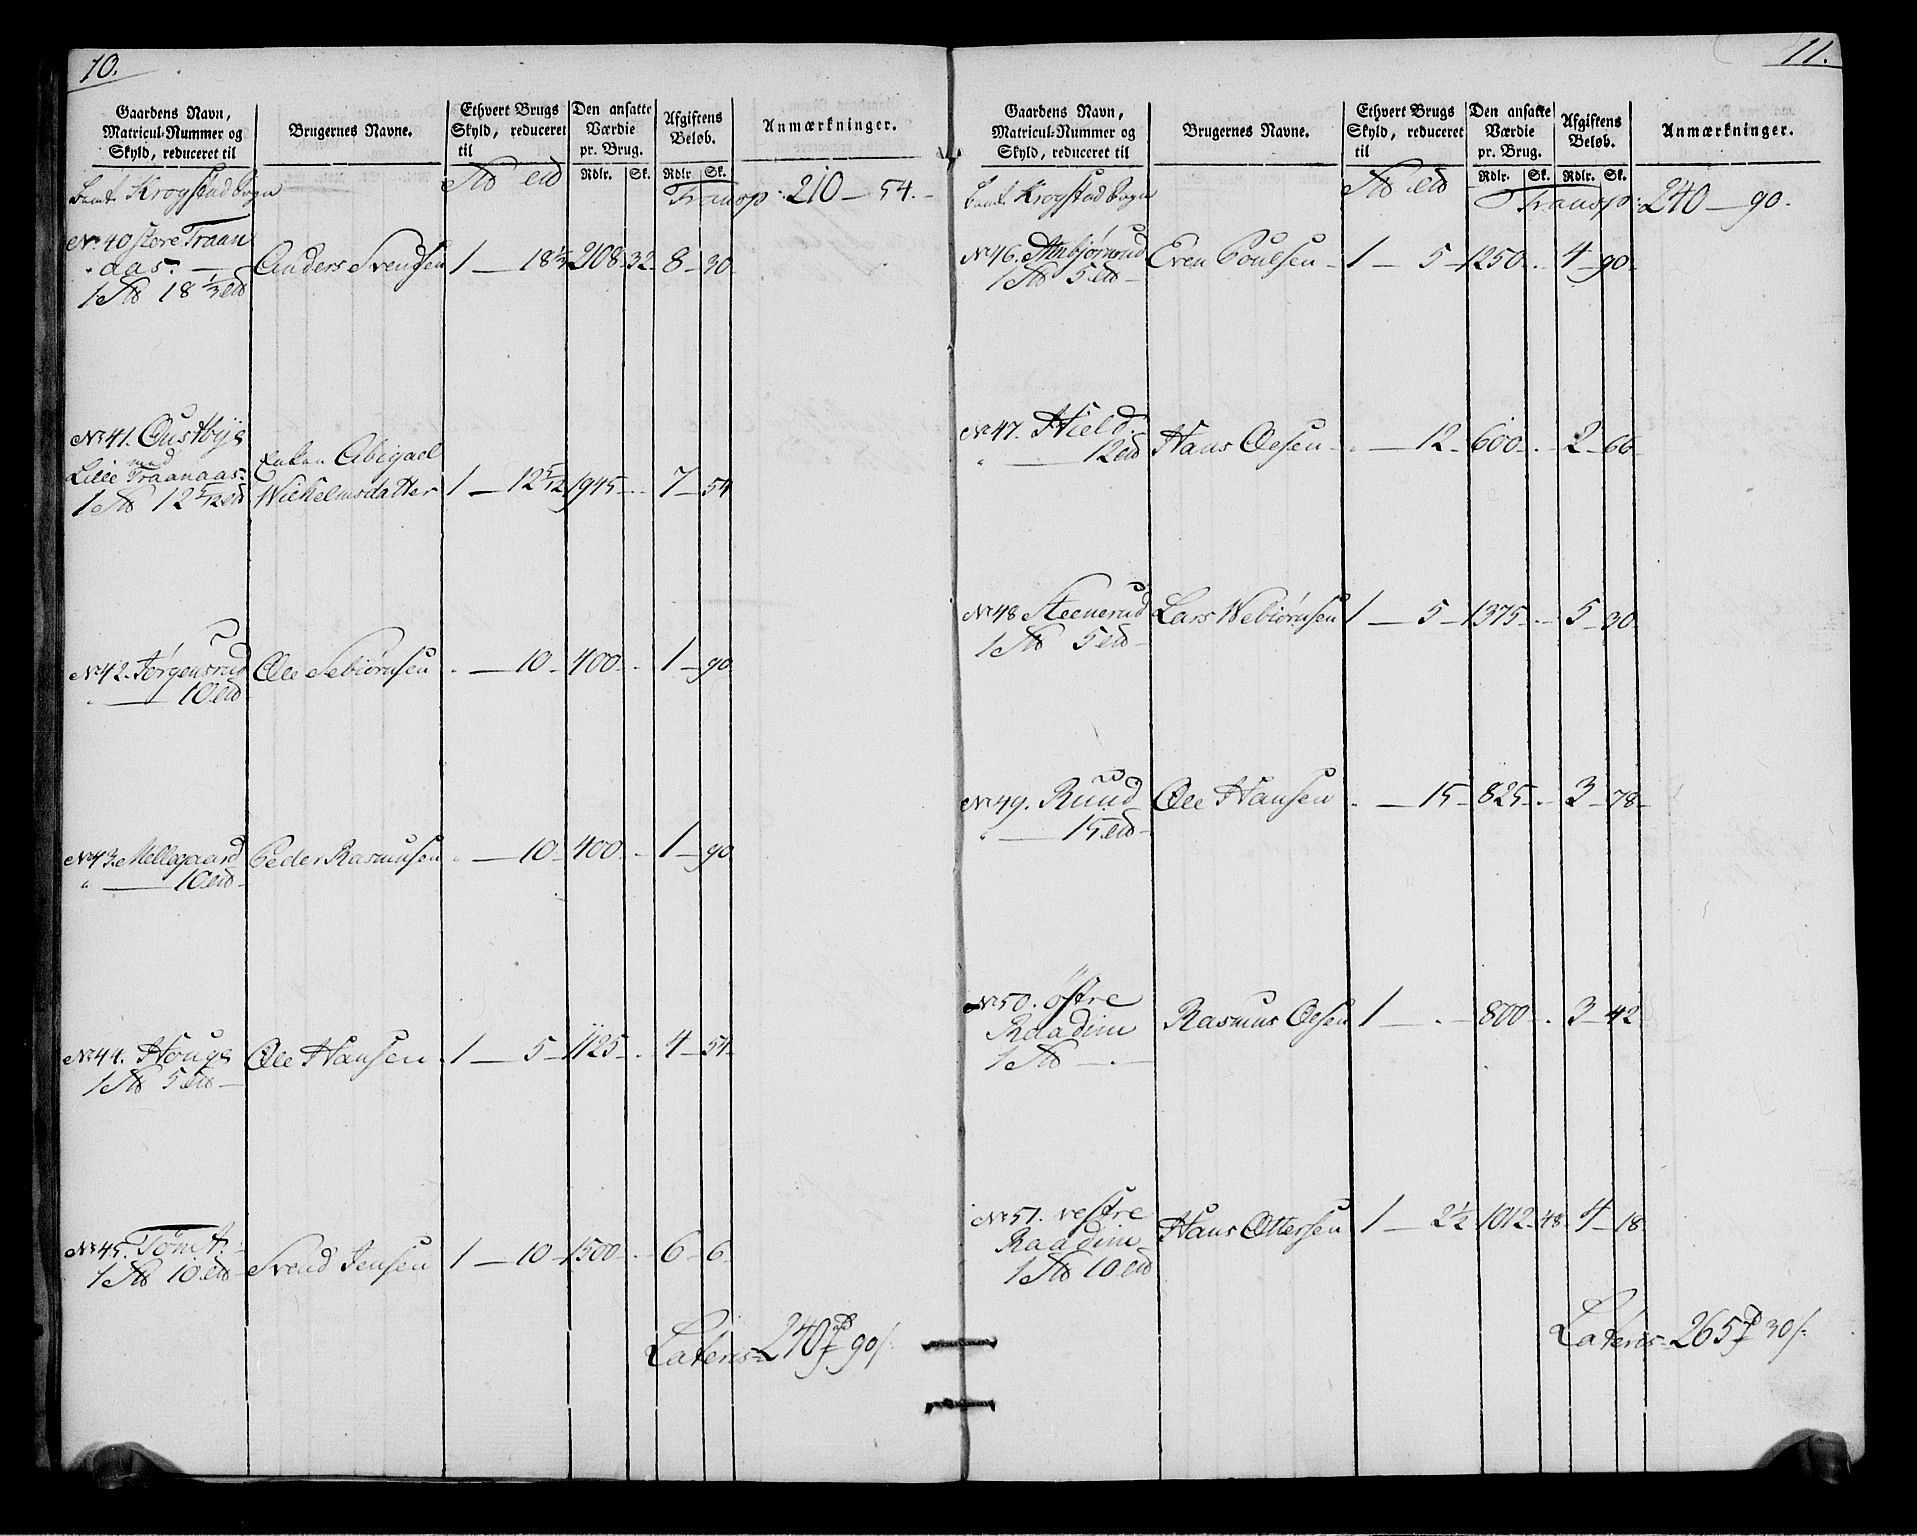 10.
Gaardens Navn,
Matricul-Nummer og
Skyld, reduceret til
Brugernes Navne.
Ethvert Brugs
Skyld, reduceret
til
Den ansatte
Værdie
pr. Brug.
Afgiftens
Beløb.
Anmærkninger.
Rdlr. Sk. Rdlr Sk.
Krogstad Sogn Transp: 210 — 54.
No 40 store Traan
aas. — Anders Svendsen 1 — 18 1/3 2108 32 8 — 30
18 1/3
No 41. Oustbye
med Enken Abigael
Lille Traanaas Wilhelmsdatter 1 — 12 5/12 1945 - 7 — 54
12 5/12
No 42. Jørgensrud Ole Sebiørnsen - — 10 - 400 - 1 — 90
10
No 43. Mellegaard Peder Rasmusen " — 10 - 400 - 1 — 90
" — 10
No 44. Houge Ole Hansen 1 — 5 - 1125 - 4 — 54
1 5
No 45. Tomt. Svend Jensen 1 — 10 - 1500 - 6 — 6
1 10
Lateris 240 90
11.
Gaardens Navn,
Matricul-Nummer og
Skyld, reduceret til
Brugernes Navne.
Ethvert Brugs
Skyld, reduceret
til
Den ansatte
Værdie
pr. Brug.
Afgiftens
Beløb.
Anmærkninger.
Rdlr. Sk. Rdlr. Sk.
Krogstad Sogn Transp: 240 — 90.
No 46. Even Poulsen 1 — 5 - 1250 - 4 — 90
1 5
No 47. Hield. Hans Olsen - — 12 - 600 - 2 — 66
" — 12
No 48 Steenerud Lars Webiørnsen 1 — 5 - 1375 - 5 — 30
1 5
No 49. Ruud Ole Hansen - — 15 - 825 - 3 — 78
" — 15
No 50. østre
Raadim Rasmus Olsen 1 — - 800 - 3 — 42
1
No 51. vestre
Raadim Hans Ottersen 1 — 2 1/2 1012 - 48 4 — 18
1 10
Lateris 265 30